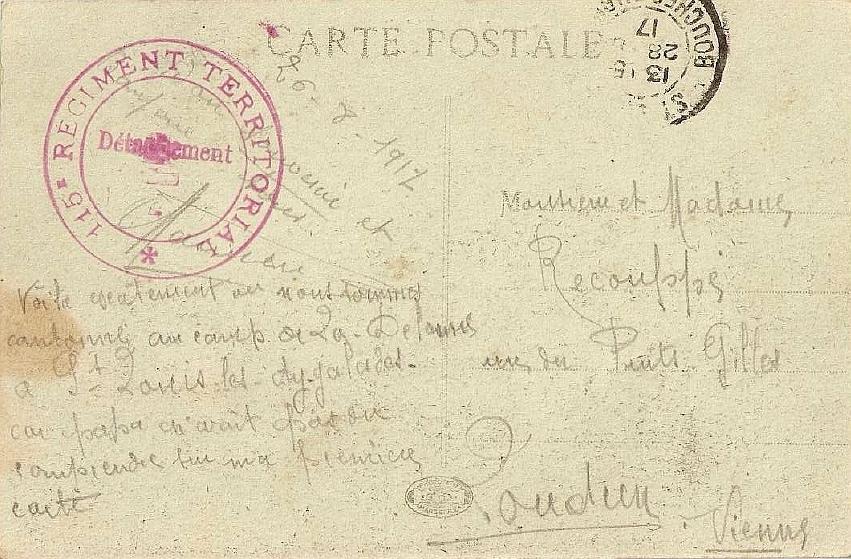 CARTE POSTALE
115e REGIMENT TERRITORIAL
Détachement
BOUCHES
13
28
17
26-8-1917
et
Voila exactement ou nous sommes
cantonnés au camp de La Delorme
a St Louis-les-Aygalades.
car papa n'avait pas pu
comprendre sur ma première
carte
Monsieur et Madame
Recouppé
rue du Puits Gilles
Loudun
Vienne